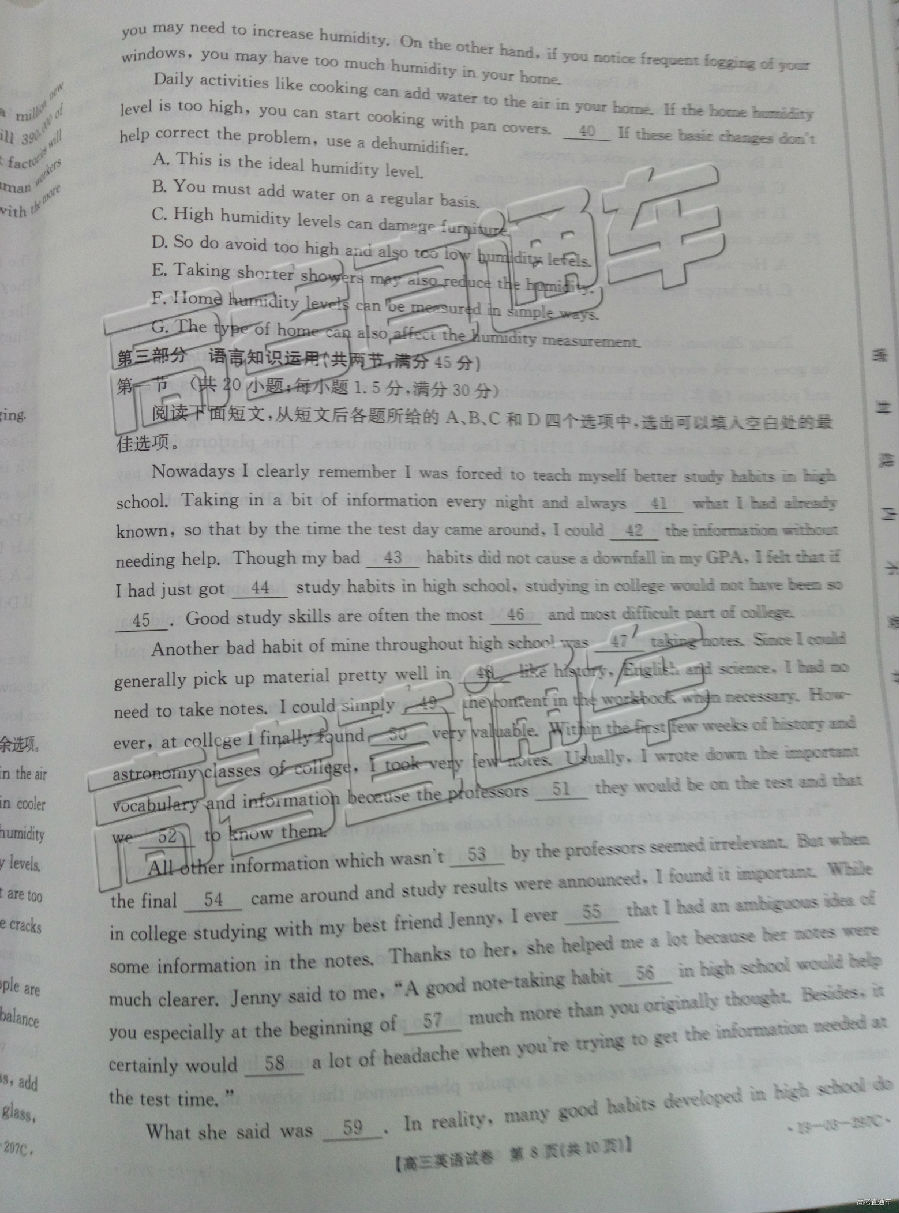 you may need to increase humidity. On the other hand, if you notice frequent fogging of your
windows, you may have too much humidity in your home.
Daily activities like cooking can add water to the air in your home. If the home humidity
level is too high, you can start cooking with pan covers. 40 If these basic changes don't
help correct the problem, use a dehumidifier.
A. This is the ideal humidity level.
B. You must add water on a regular basis.
C. High humidity levels can damage furniture.
D. So do avoid too high and also too low humidity levels.
E. Taking shorter showers may also reduce the humidity.
F. Home humidity levels can be measured in simple ways.
G. The type of home can also affect the humidity measurement.
第三部分 语言知识运用(共两节,满分45分)
第一节 (共20小题;每小题1.5分,满分30分)
阅读下面短文,从短文后各题所给的A、B、C和D四个选项中,选出可以填入空白处的最
佳选项。
Nowadays I clearly remember I was forced to teach myself better study habits in high
school. Taking in a bit of information every night and always 41 what I had already
known, so that by the time the test day came around, I could 42 the information without
needing help. Though my bad 43 habits did not cause a downfall in my GPA, I felt that if
I had just got 44 study habits in high school, studying in college would not have been so
45 . Good study skills are often the most 46 and most difficult part of college.
Another bad habit of mine throughout high school was 47 taking notes. Since I could
generally pick up material pretty well in 48 like history, English and science, I had no
need to take notes. I could simply 49 the content in the workbook when necessary. How-
ever, at college I finally found 50 very valuable. Within the first few weeks of history and
astronomy classes of college, I took very few notes. Usually, I wrote down the important
vocabulary and information because the professors 51 they would be on the test and that
we 52 to know them.
All other information which wasn't 53 by the professors seemed irrelevant. But when
the final 54 came around and study results were announced, I found it important. While
in college studying with my best friend Jenny, I ever 55 that I had an ambiguous idea of
some information in the notes. Thanks to her, she helped me a lot because her notes were
much clearer. Jenny said to me, “A good note-taking habit 56 in high school would help
you especially at the beginning of 57 much more than you originally thought. Besides, it
certainly would 58 a lot of headache when you're trying to get the information needed at
the test time.”
What she said was 59 . In reality, many good habits developed in high school do
【高三英语试卷 第8页(共10页)】
·19-03-297C·
a million new
ill 390,000 of
factories will
man workers
with the more
ging.
余选项。
in the air
in cooler
humidity
y levels,
t are too
e cracks
ple are
balance
s, add
glass,
297C·
高考直通车
高考直通车